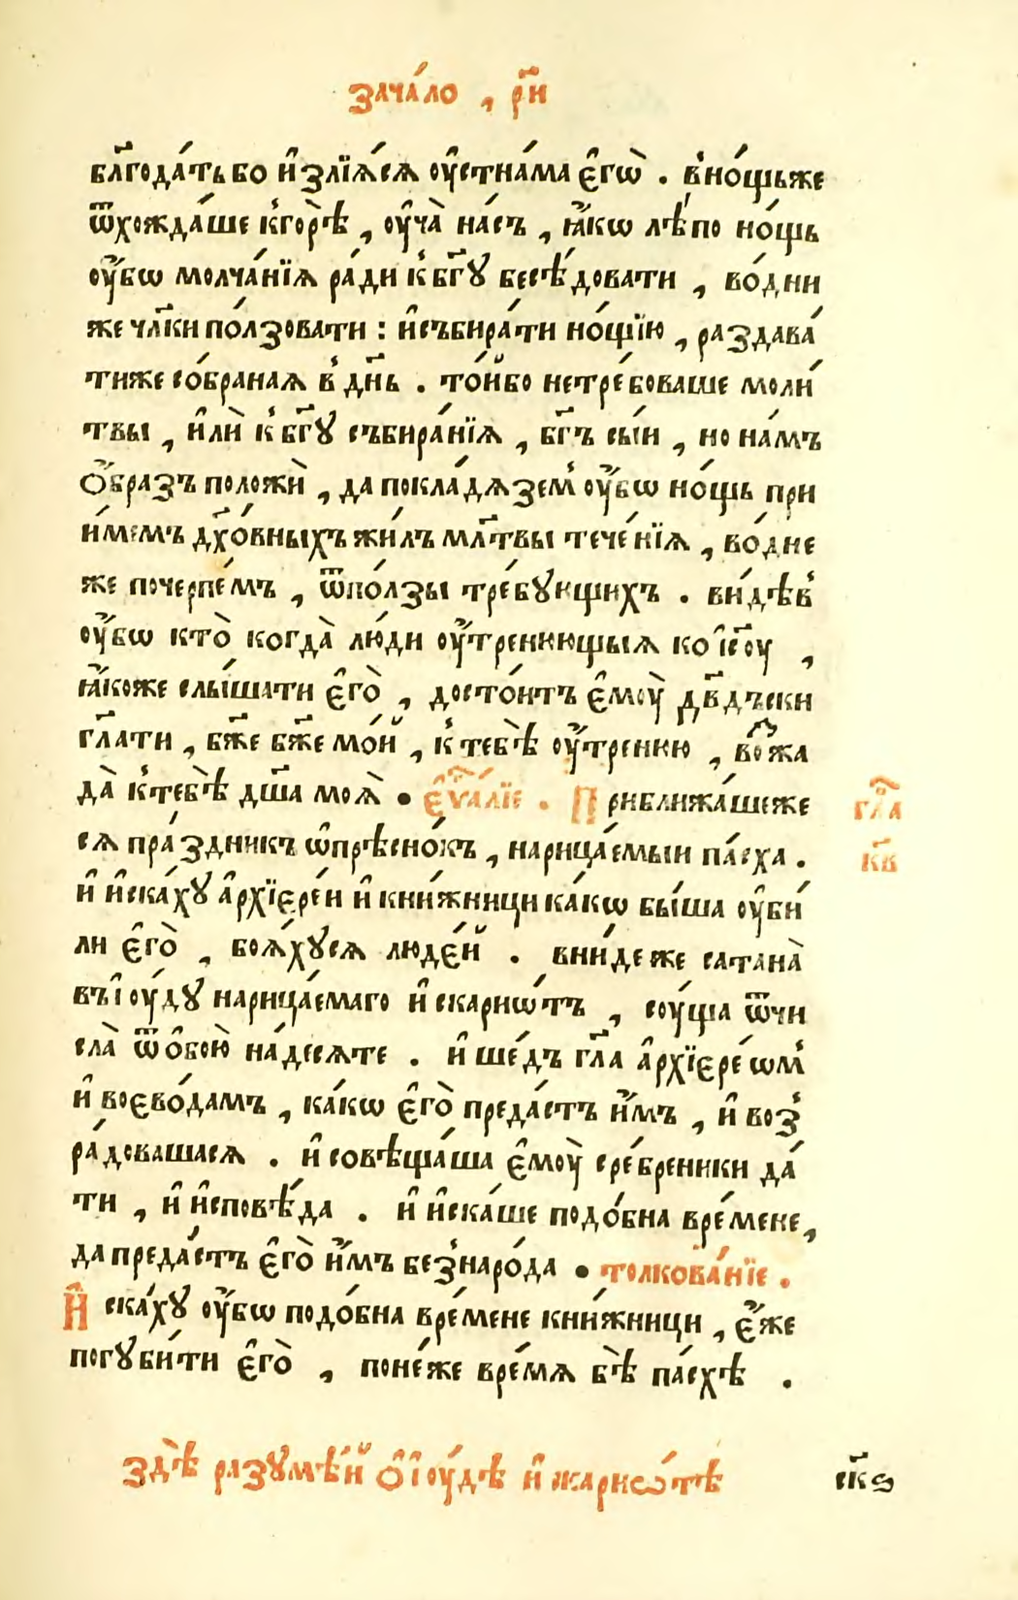 зача́ло , р҃и
бл҃года́ть бо и҆злїѧ́сѧ оу҆стна́ма є҆гѡ̀ . в҆но́щьже
ѿхожда́ше к҆горѣ̀ , оу҆ча̀ на́съ , ꙗ҆́кѡ лѣ́по но́щь
оу҆́бѡ молча́нїѧ ра́ди к҆ бг҃ꙋ бесѣ́довати , во́дни
же чл҃ки по́лзовати : и҆събира́ти но́щїю , раздава́
тиже со́браная в҆ дн҃ь . то́йбо нетре́боваше моли́
твы , и҆лѝ к҆ бг҃ꙋ събира́нїѧ , бг҃ъ сы́и , но на́мъ
ѻ҆́бразъ положѝ , да покла́дѧзем҆ оу҆́бѡ но́щь при
и́мемъ дх҃о́вныхъ жи́лъ мл҃твы тече́нїѧ , во́дне
же почерпе́мъ , ѿпо́лзы тре́бꙋющихъ . ви́дѣв҆
оу҆́бѡ кто̀ когда̀ лю́ди оу҆́тренюющыѧ ко і҆с҃оу ,
ꙗ҆́коже слы́шати є҆го̀ , досто́итъ є҆моу̀ дв҃дъски
гл҃ати , бж҃е бж҃е мо́й , к҆ тебѣ̀ оу҆́треннюю , во́жа
да̀ к҆тебѣ̀ дш҃а моѧ̀ • є҆ѵⷢ҇алїе . Приближа́шеже
гл҃а
сѧ пра́здникъ ѡ҆прѣсно́къ , нарица́емыи па́сха .
к҃в
и҆ и҆ска́хꙋ а҆рхїєре́и и҆ кни́жницы ка́кѡ бы́ша оу҆би́
ли є҆го̀ , боѧ́хꙋсѧ люде́й . вни́де же сатана̀
въ і҆оу́дꙋ нарица́емаго и҆скариѡ́тъ , соу́ща ѿчи
сла̀ ѿ ѻ҆бою̀ на́десѧте . и҆ ше́дъ гл҃а а҆рхїєре́ѡм҆
и҆ воєво́дамъ , ка́кѡ є҆го̀ преда́стъ и҆̀мъ , и҆ воз҆
ра́довашасѧ . и҆ совѣща́ша є҆моу̀ сре́бреники да́
ти , и҆ и҆сповѣ́да . и҆ и҆ска́ше подо́бна вре́мене ,
да преда́стъ є҆го̀ и҆̀мъ без҆наро́да • толкова́нїе .
И҆ ска́хꙋ оу҆́бѡ подо́бна вре́мене кни́жницы , є҆́же
погꙋби́ти є҆го̀ , поне́же вре́мѧ бѣ̀ па́схѣ .
здѣ̀ разꙋмѣ́й ѻ҆ і҆оу́дѣ и҆ жариѡ́тѣ
ск҃ѕ